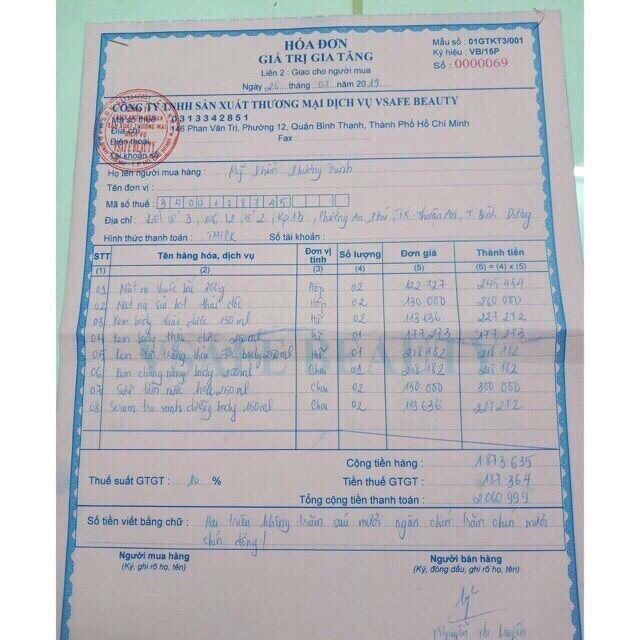 HÓA ĐƠN
GIÁ TRỊ GIA TĂNG
Liên 2 : Giao cho người mua
Ngày 26 tháng 03 năm 2019
Mẫu số : 01GTKT3/001
Ký hiệu : VB/15P
Số : 0000069
CÔNG TY TNHH SẢN XUẤT THƯƠNG MẠI DỊCH VỤ VSAFE BEAUTY
Mã số thuế 0313342851
Địa chỉ 146 Phan Văn Trị, Phường 12, Quận Bình Thạnh, Thành Phố Hồ Chí Minh
Điện thoại Fax :
Tài khoản số
Họ tên người mua hàng : Mỹ Phẩm Phương
Tên đơn vị :
Mã số thuế : 3400188745
Địa chỉ : tổ 2, Kp 1B, Phường An Phú, TX Thuận An, T. Bình Dương
Hình thức thanh toán : TM/CK Số tài khoản :
STT Tên hàng hóa, dịch vụ Đơn vị tính Số lượng Đơn giá Thành tiền
(1) (2) (3) (4) (5) (6) = (4) x (5)
01 Mặt nạ thuốc bắc 300g Hộp 02 122 727 245 454
02 Mặt nạ sủi bọt thải độc Hộp 02 130 000 260 000
03 Kem body thảo dược 150ml Hũ 02 113 636 227 272
04 Kem body thảo dược 250ml Hũ 01 177 273 177 273
05 Kem tắm trắng thải độc body 250ml Hũ 01 218 182 218 182
06 Kem chống nắng body 200ml Chai 01 218 182 218 182
07 Sữa tắm nước hoa 250ml Chai 02 150 000 300 000
08 Serum trà xanh dưỡng body 150ml Chai 02 113 636 227 272
SAFE BEAUTY
Cộng tiền hàng : 1 873 635
Thuế suất GTGT : 10 % Tiền thuế GTGT : 187 364
Tổng cộng tiền thanh toán : 2 060 999
Số tiền viết bằng chữ : Hai triệu không trăm sáu mươi ngàn chín trăm chín mươi
chín đồng!
Người mua hàng
(Ký, ghi rõ họ, tên)
Người bán hàng
(Ký, đóng dấu, ghi rõ họ, tên)
Nguyễn Thị